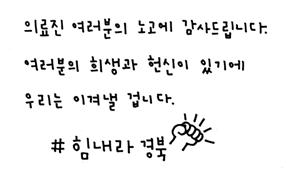 의료진 여러분의 노고에 감사드립니다.
여러분의 희생과 헌신이 있기에
우리는 이겨낼 겁니다.
#힘내라 경북